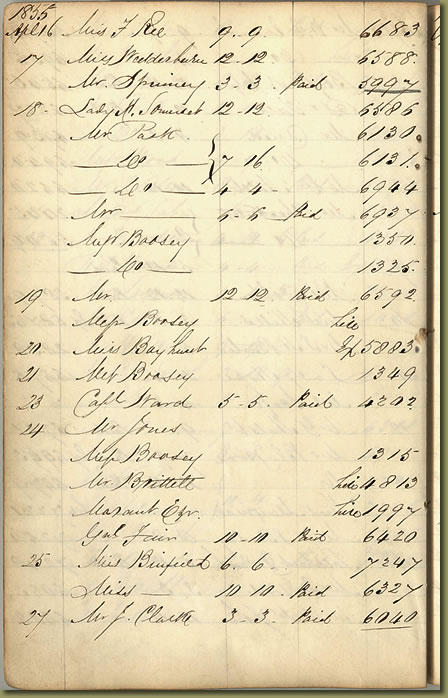 1855
Apl 16 Miss F Ree 9 - 9 6683
17 Miss Wedderburn 12 - 12 6588
Mr. 3 - 3 - Paid 5997
18 - Lady M. Somerset 12 - 12 6586
Mr Park 6130
— Do — 7 16 6131
— Do — 4 4 - 6944
Mr — 5 - 5 Paid 6937
Messrs Boosey 1350
— Do — 1325
19 Mr. 12 12 Paid 6592
Messrs Boosey hire
20 Miss Bayhurst Ex 5883
21 Messrs Boosey 1349
23 Capt Ward 5 - 5. Paid 4202
24 Mr Jones
Messrs Boosey 1315
Mr Brittell hire 4813
Esqr. hire 1997
Genl Fair 10 - 10 Paid 6420
25 Miss Binfield 6 . 6 . 7247
Miss — 10 10 . Paid 6327
27 Mr J. Clarke 3 - 3 . Paid 6040